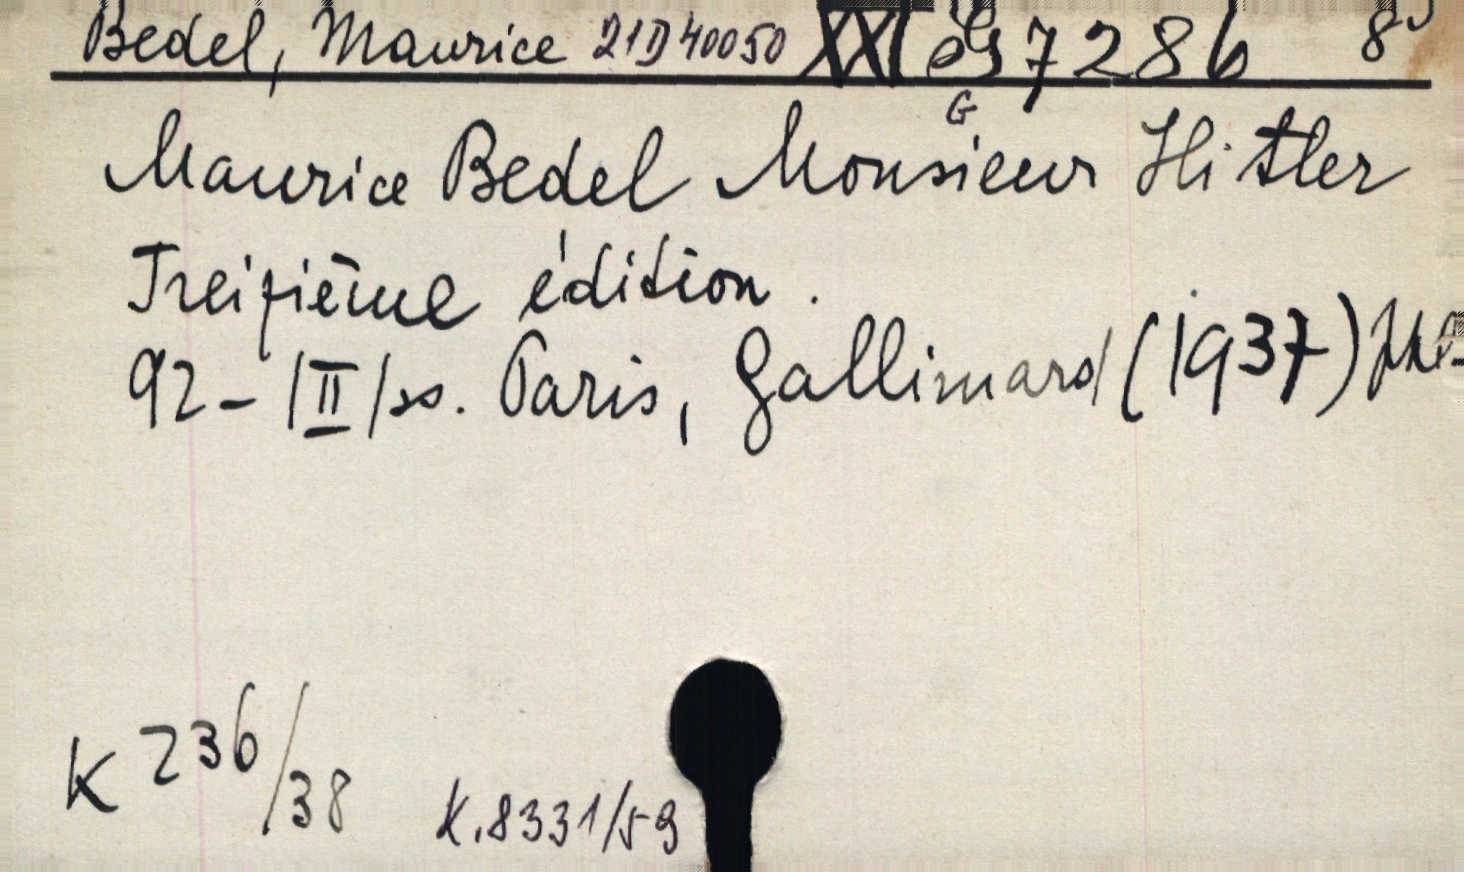 Bedel, Maurice 21D40050 XXI 7286 8°
G
Maurice Bedel Monsieur Hitler
Treizième édition.
92 - |II| ss. Paris, Gallimard (1937)
K 236/38
K.8331/59